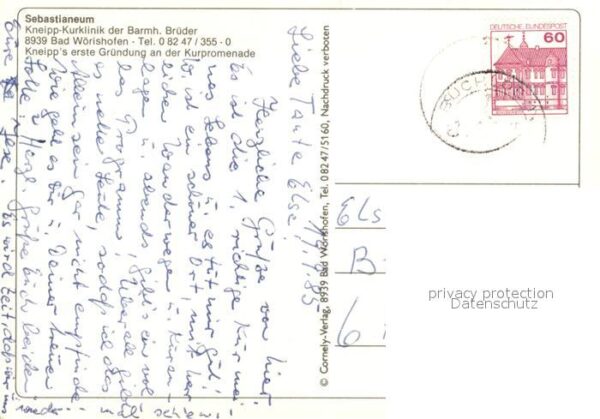 Sebastianeum
Kneipp-Kurklinik der Barmh. Brüder
8939 Bad Wörishofen - Tel. 0 82 47 / 355 - 0
Kneipp's erste Gründung an der Kurpromenade
DEUTSCHE BUNDESPOST
60
© Cornely-Verlag, 8939 Bad Wörishofen, Tel. 0 82 47/5160, Nachdruck verboten
1985
Liebe Tante Else!
Herzliche Grüße von hier.
Es ist die 1. richtige Kur mei-
nes Lebens u. es tut mir gut!
W. ist ein schöner Ort, mit herr-
lichen Wanderwegen u. Kuran-
lagen u. abends gibt's ein vol-
les Programm! Überall gibt
es nette Leute, sodaß ich das
Alleinsein gar nicht empfinde.
Wie geht es Dir u. Deiner treuen
Hilfe? Herzl. Grüße Euch beiden
Eure
Es wird Zeit, daß wir uns
Els
B
6
privacy protection
Datenschutz